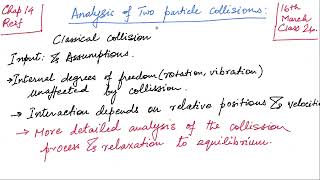 Chap 14
Reif
Analysis of Two particle Collisions:
16th
March
Class 24.
Classical collision
Input: & Assumptions.
→ Internal degrees of freedom (rotation, vibration)
unaffected by collision.
→ Interaction depends on relative positions & velociti
→ More detailed analysis of the collision
process & relaxation to equilibrium.